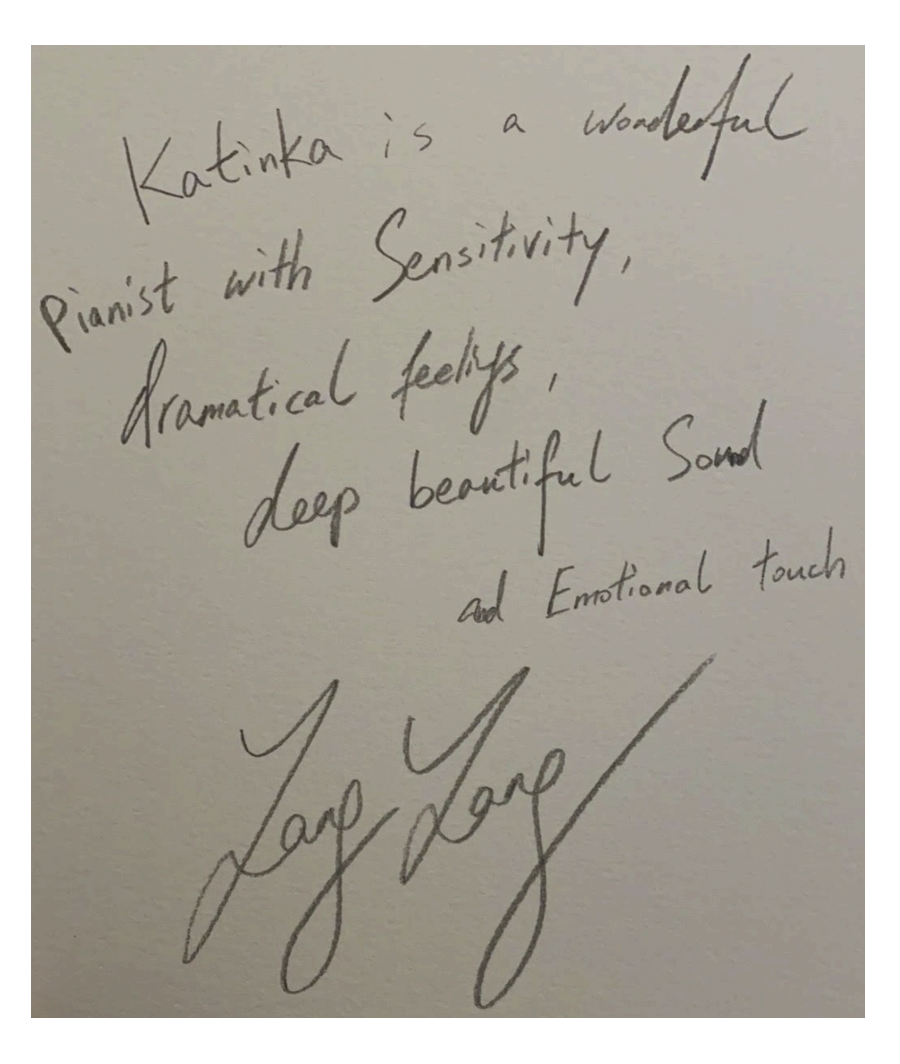 Katinka is a wonderful
pianist with Sensitivity,
dramatical feelings,
deep beautiful Sound
and Emotional touch
Lang Lang